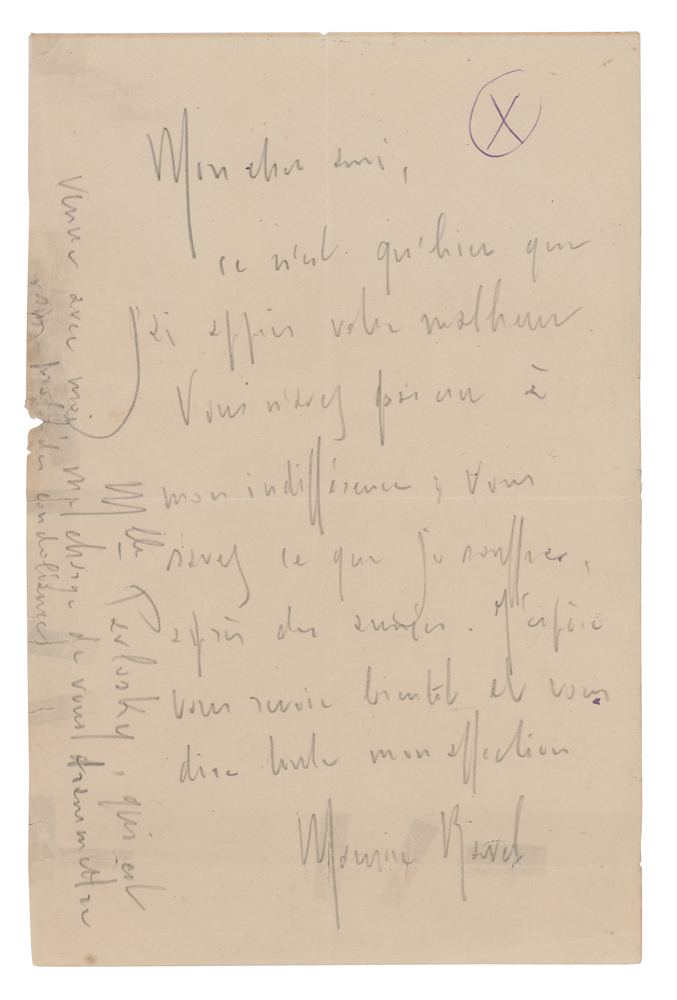 X
Mon cher ami,
ce n'est qu'hier que
j'ai appris votre malheur.
Vous n'avez pas cru à
mon indifférence ; vous
savez ce que je souffre,
après des années. J'espère
vous revoir bientôt et vous
dire toute mon affection
Maurice Ravel
Mlle Pavlosky, qui est
venue avec moi, me charge de vous transmettre
profondes condoléances